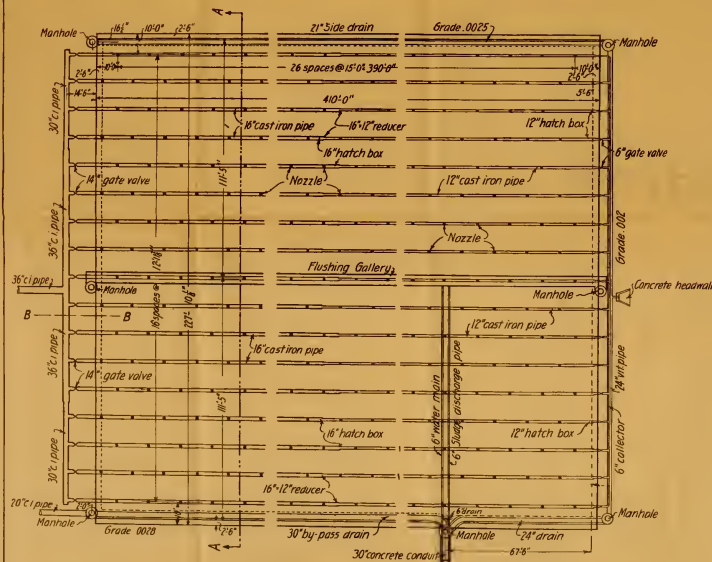 A
16½"
10'-0"
2'-6"
21" Side drain
Grade .0025
Manhole
Manhole
26 spaces @ 15'-0" 390'-0"
10'-0"
2'-6"
2'-6"
14'-6"
410'-0"
5'-6"
30" c i pipe
16" cast iron pipe
16"×12" reducer
12" hatch box
16" hatch box
6" gate valve
14" gate valve
Nozzle
12" cast iron pipe
111'-5"
Nozzle
36" c i pipe
Grade .002
Flushing Gallery
36" c i pipe
Manhole
Manhole
Concrete headwall
16 spaces @
B
B
12" cast iron pipe
16" cast iron pipe
36" c i pipe
14" gate valve
6" water main
6" Sludge discharge pipe
24" vit pipe
111'-5"
16" hatch box
12" hatch box
6" collector
30" c i pipe
16"×12" reducer
20" c i pipe
2'-0"
6" drain
Manhole
Manhole
Grade 0028
2'-6"
30" by-pass drain
Manhole
24" drain
A
30" concrete conduit
67'-6"